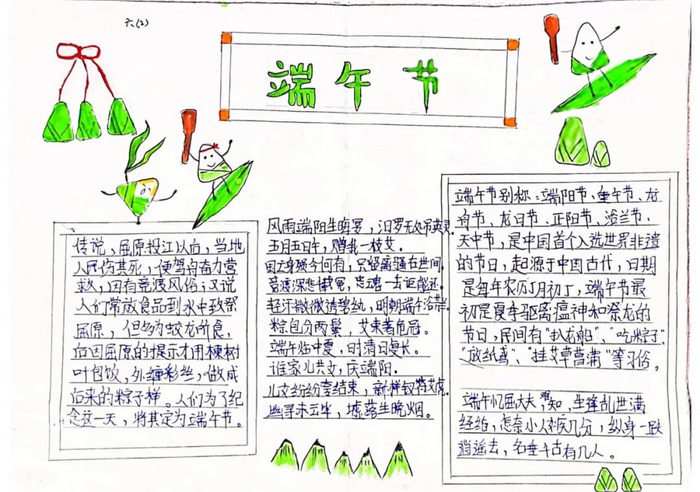 六(2)
端午节
传说,屈原投江以后,当地
人民伤其死,便驾舟奋力营
救,因有竞渡风俗;又说
人们常放食品到水中致祭
屈原,但多为蛟龙所食,
后因屈原的提示才用楝树
叶包饭,外缠彩丝,做成
后来的粽子样。人们为了纪
念这一天,将其定为端午节。
风雨端阳生晦冥,汨罗无处吊英灵
五月五日午,赠我一枝艾.
国亡身殒今何有,只留离骚在世间.
竞渡深悲千载冤,忠魂一去讵能还.
轻汗微微透碧纨,明朝端午浴芳兰.
粽包分两髻,艾束著危冠.
端午临中夏,时清日复长.
谁家儿共女,庆端阳.
儿女纷纷夸结束,新样钗符艾虎.
幽寻未云毕,墟落生晚烟.
端午节别称:端阳节、重午节、龙
舟节、龙日节、正阳节、浴兰节、
天中节,是中国首个入选世界非遗
的节日,起源于中国古代,日期
是每年农历5月初5,端午节最
初是夏季驱离瘟神和祭龙的
节日,民间有"扒龙船"、"吃粽子"
"放纸鸢"、"挂艾草菖蒲"等习俗。
端午忆屈大夫 生逢乱世满
经纶,怎奈小人嫉几分,纵身一跃
逍遥去,名垂千古有几人。